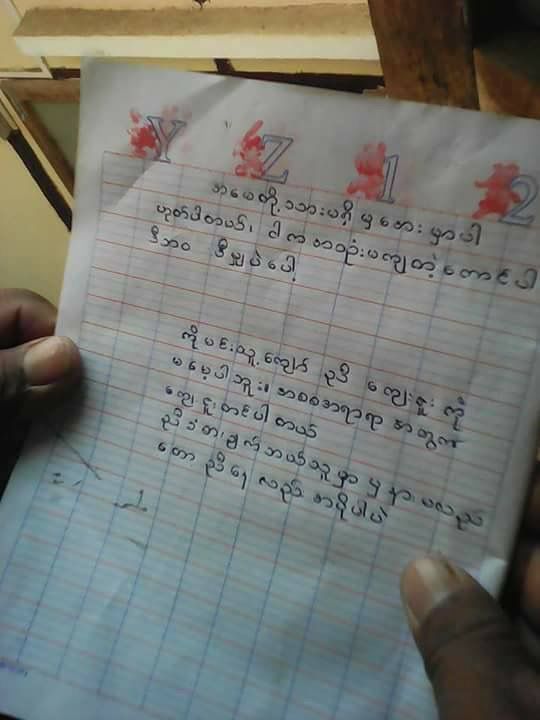 Y Z 1 2
အမေကို သားမရှိမှတေးမှာပါ
ဟုတ်ပါတယ်၊ ငါက အသုံးမကျတဲ့ကောင်ပါ
ဒီဘဝ ဒီမျှပဲပေါ့
ကိုမင်းသူ ကျော် ညီ ကျေးဇူး ကို
မမေ့ပါဘူး။ အစစအရာရာ အတွက်
ကျေးဇူးတင်ပါတယ်
ညီ ဒီတ ရွက် ဘယ်သူမှ မှ နား မလည်
တော ညီ ရေ့ လည် အဓိပါပဲ